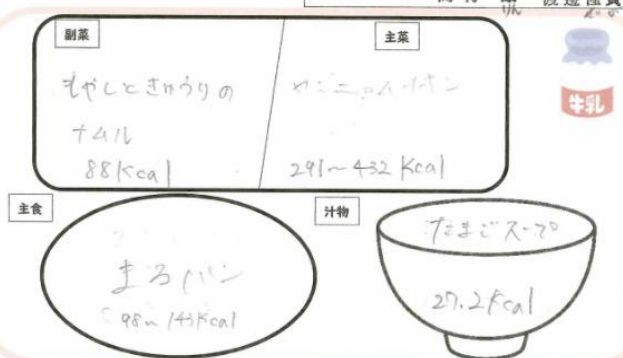 副菜
主菜
もやしときゅうりの
ナムル
88Kcal
291~432 Kcal
牛乳
主食
汁物
まるパン
98~143Kcal
たまごスープ
27.2Kcal